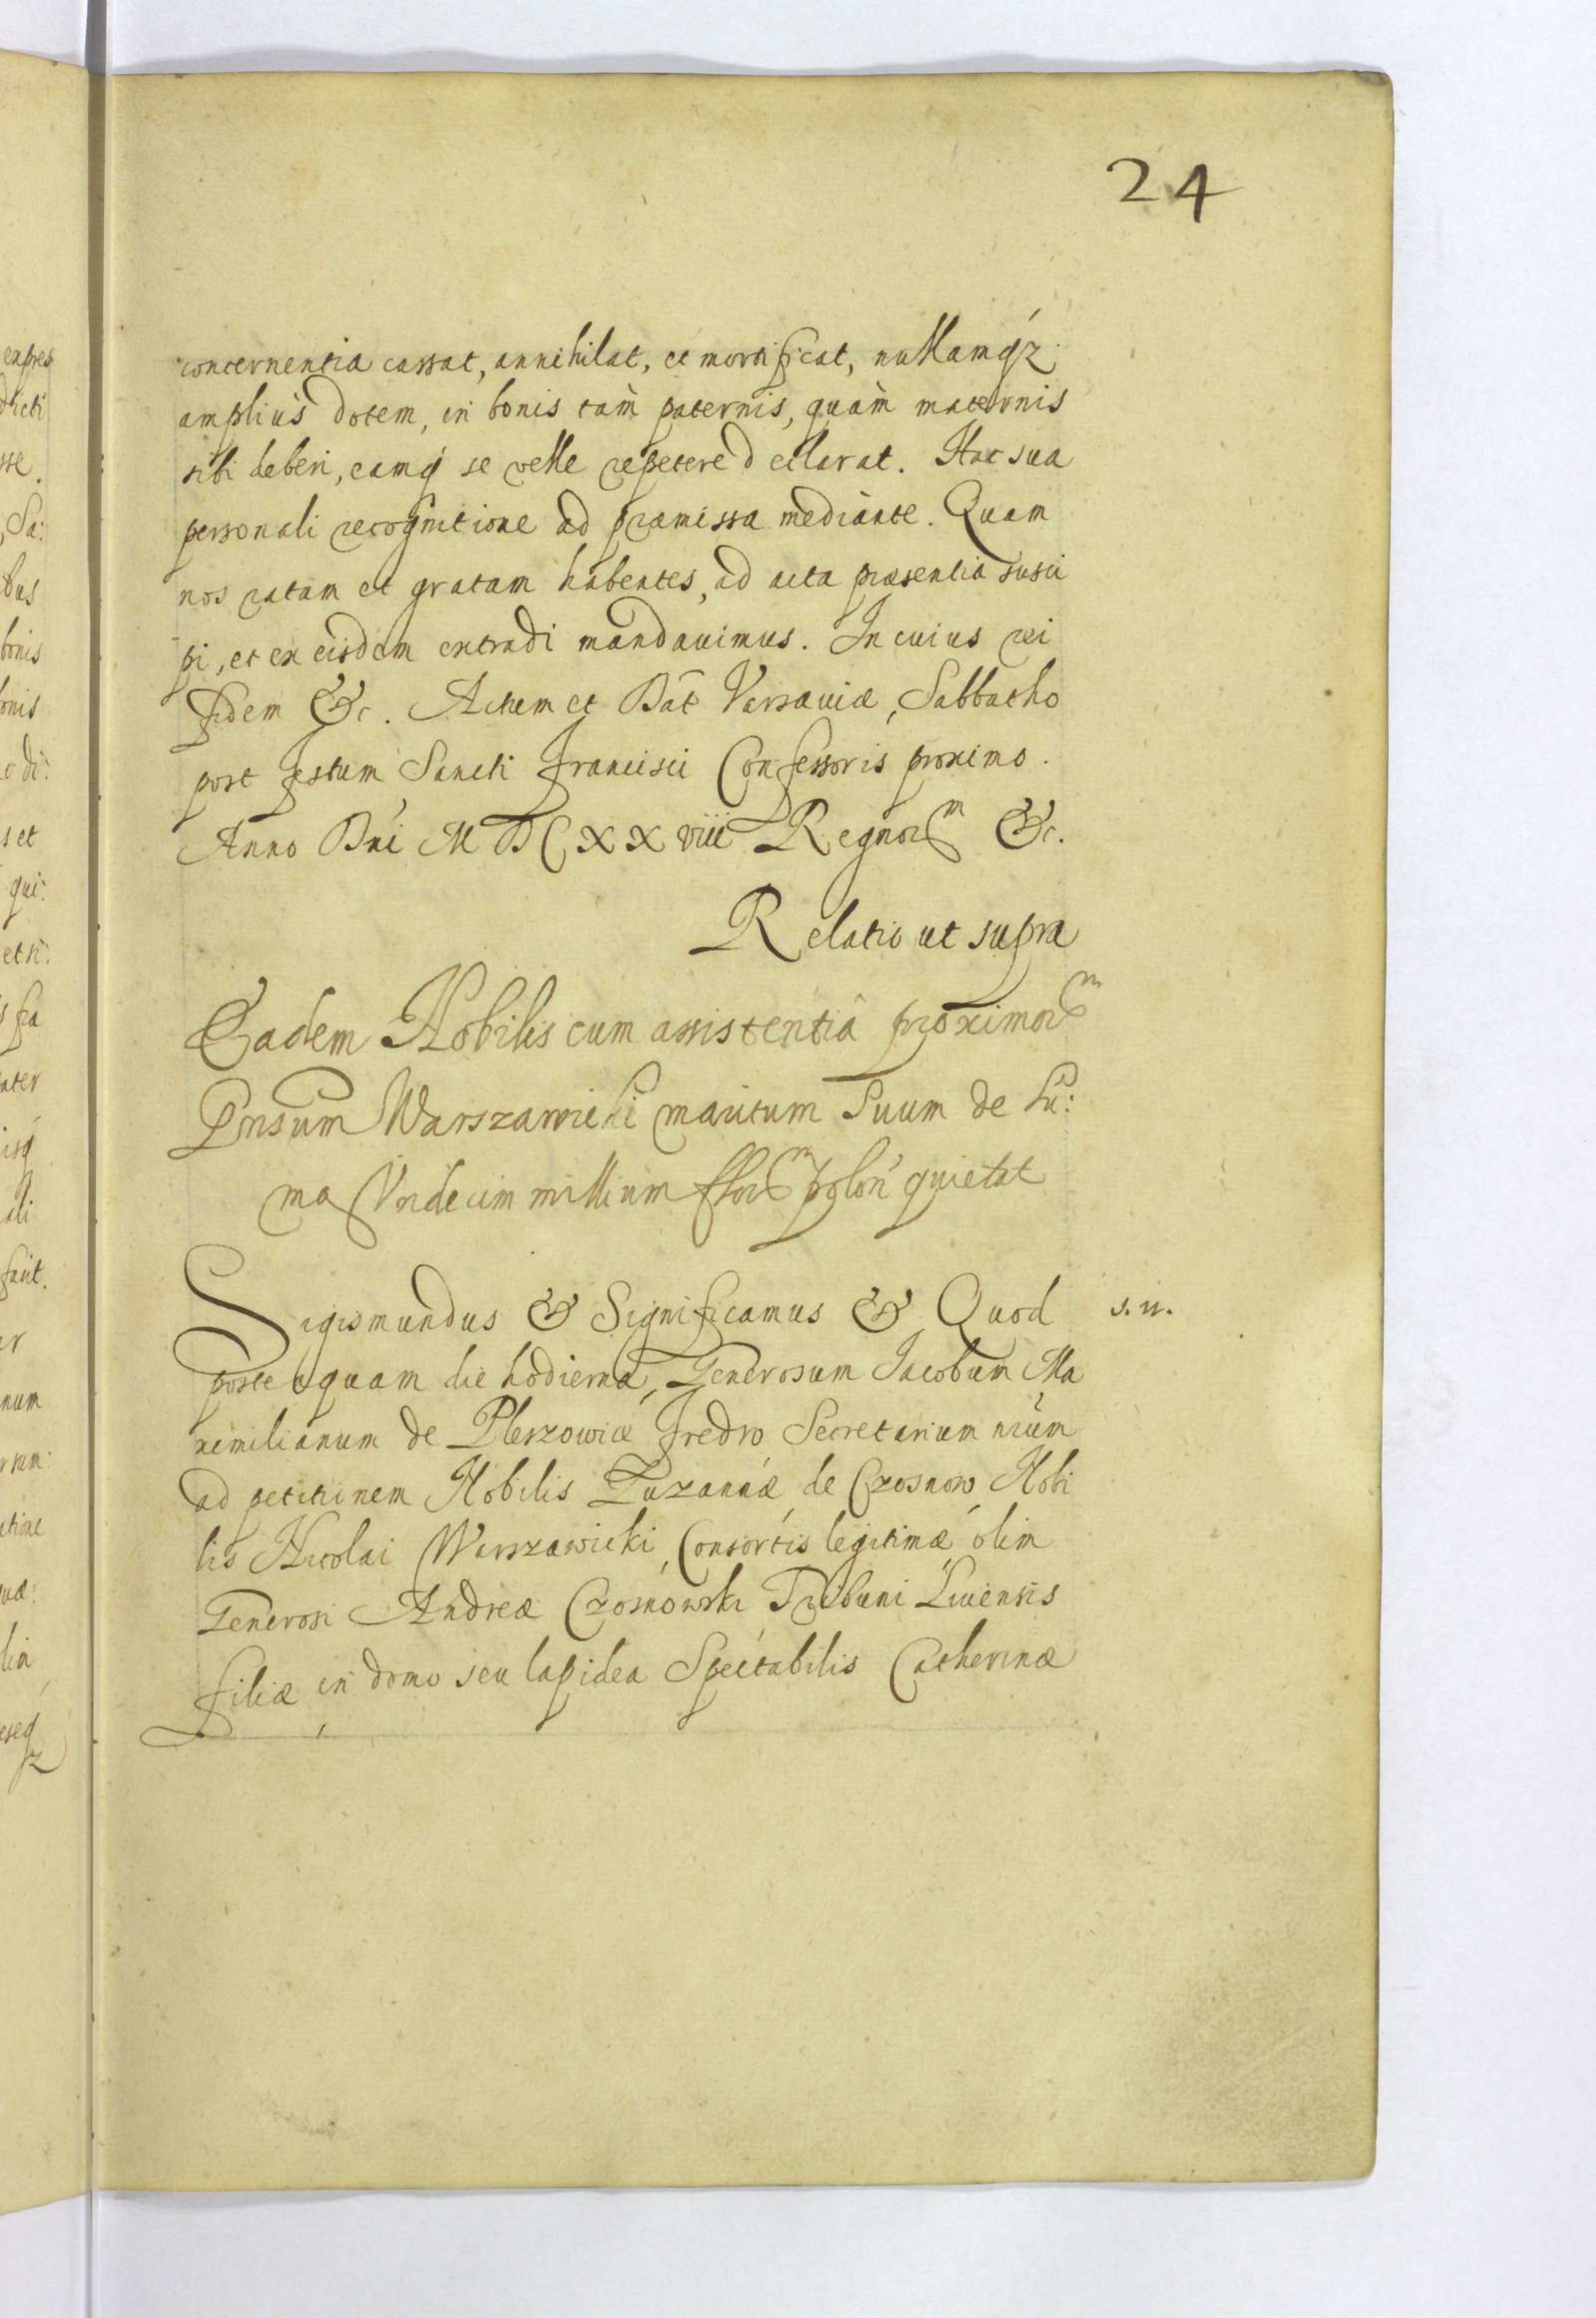 24
concernentia cassat, annihilat, et mortificat, nullamqz
ampliùs dotem, in bonis tàm paternis, quàm maternis
sibi deberi, eamq se velle repetere declarat. Hac sua
personali recognitione ad præmissa mediante. Quam
nos ratam et gratam habentes, ad acta præsentia susci
pi, et ex eisdem extradi mandauimus. In cuius rei
fidem &c. Actum et Dat Varsauiæ, Sabbatho
post festum Sancti Francisci Confessoris proximo.
Anno Dni MDCXXviii Regnor͏ᵐ &c.
Relatio ut supra
Eadem Nobilis cum assistentiâ proximorᵐ
Warszawicki maritum Suum de Su:
ma Vndecim millium florᵐ polon quietat
Sigismundus & Significamus & Quod s.n.
postequam die hodierna, Generosum Jacobum Ma
ximilianum de Pleszowice Fredro Secretarium nrum
ad petitinem Nobilis Zuzannæ de Czosnow Nobi
lis Nicolai Warszawicki, Consortis legitimæ olim
Generosi Andreæ Czosnowski Tribuni Liuensis
filiæ in domo seu lapidea Spectabilis Catherinæ